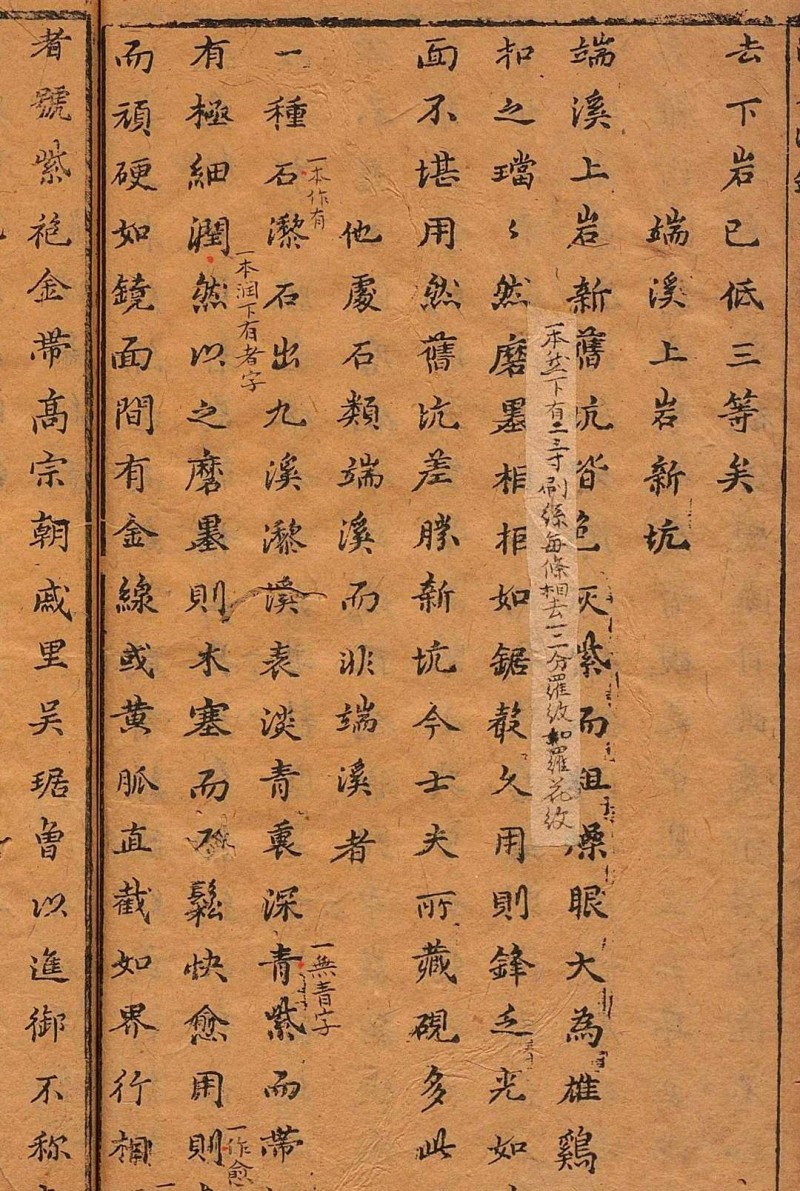 去下岩已低三等矣
端溪上岩新坑
端溪上岩新舊坑皆色灰紫而粗燥眼大為雄鷄
扣之璫〻然磨墨相拒如鋸聲久用則鋒乏光如
一本然下有二三寸刷絲每條相去一二分羅紋如羅花紋
面不堪用然舊坑差勝新坑今士夫所藏硯多此
他處石類端溪而非端溪者
一種石㵽石出九溪㵽溪表淡青裏深青紫而帶
一本作有
一無青字
有極細潤然以之磨墨則木塞而不鬆快愈用則
一本润下有者字
一作愈
而頑硬如鏡面間有金線或黃脈直截如界行相
者號紫袍金帶高宗朝戚里吳琚曾以進御不称